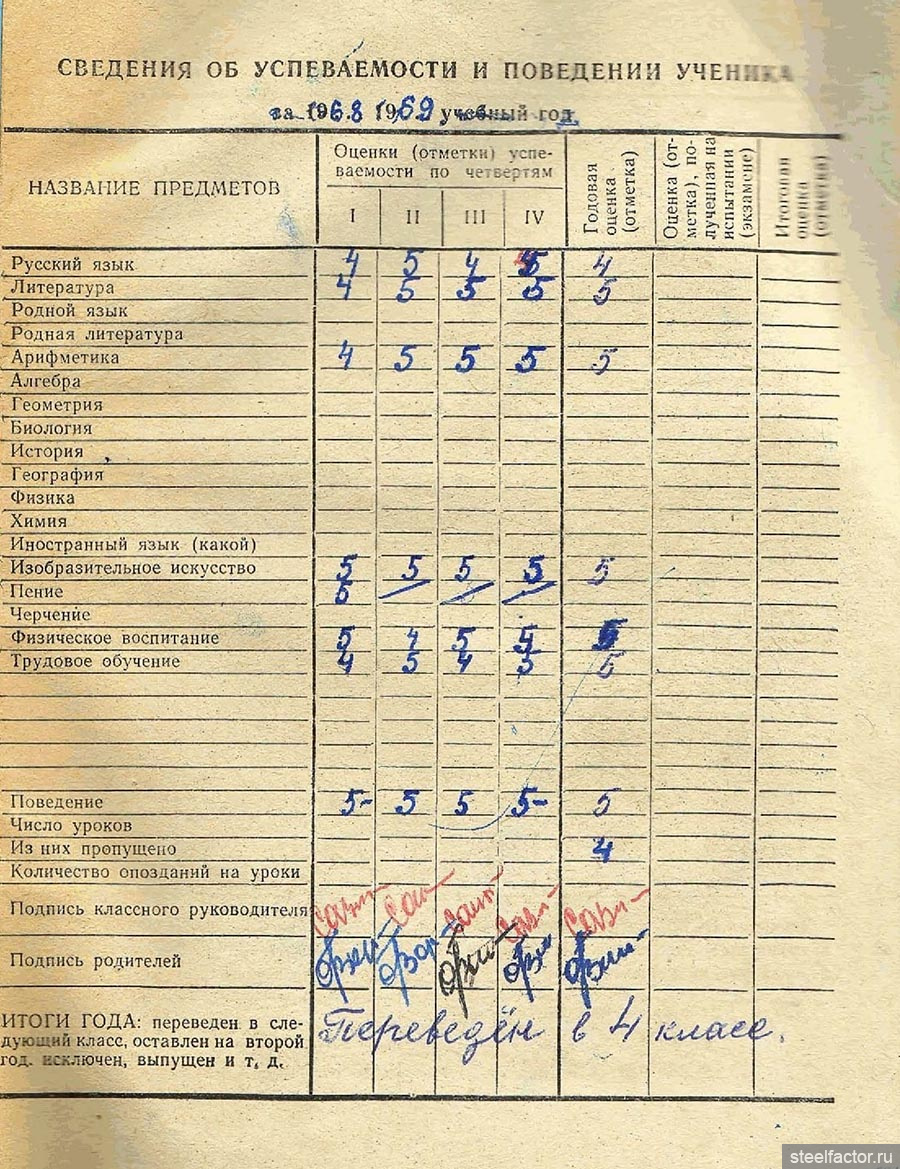 СВЕДЕНИЯ ОБ УСПЕВАЕМОСТИ И ПОВЕДЕНИИ УЧЕНИКА
за 1968 1969 учебный год
НАЗВАНИЕ ПРЕДМЕТОВ
Оценки (отметки) успе-
ваемости по четвертям
I II III IV
Годовая
оценка
(отметка)
Оценка (от-
метка), по-
лученная на
испытании
(экзамене)
Итоговая
оценка
(отметка)
Русский язык 4 5 4 5 4
Литература 4 5 5 5 5
Родной язык
Родная литература
Арифметика 4 5 5 5 5
Алгебра
Геометрия
Биология
История
География
Физика
Химия
Иностранный язык (какой)
Изобразительное искусство 5 5 5 5 5
Пение 5
Черчение
Физическое воспитание 5 4 5 5 5
Трудовое обучение 4 5 4 5 5
Поведение 5- 5 5 5- 5
Число уроков
Из них пропущено 4
Количество опозданий на уроки
Подпись классного руководителя
Подпись родителей
ИТОГИ ГОДА: переведен в сле-
дующий класс, оставлен на второй
год. исключен, выпущен и т, д.
Переведён в 4 классе.
steelfactor.ru